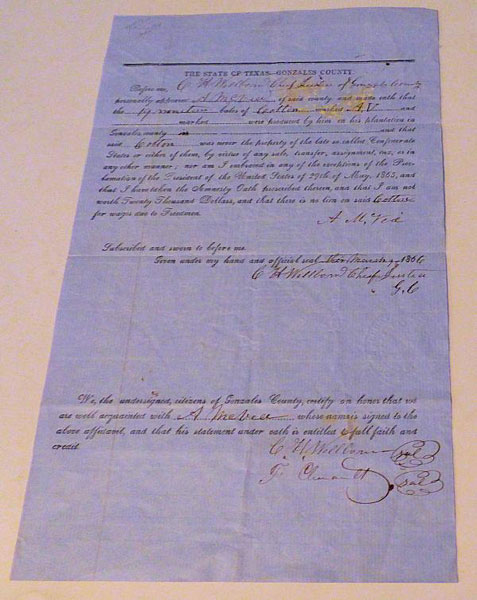 THE STATE OF TEXAS—GONZALES COUNTY.
Before me, C. H. Chief Justice of Gonzales County
personally appeared A. of said county and made oath that
the bales of Cotton marked A. V. and
marked were produced by him on his plantation in
Gonzales county in and that
said Cotton was never the property of the late so-called Confederate
States or either of them, by virtue of any sale, transfer, assignment, tax, or in
any other manner; nor am I embraced in any of the exceptions of the Proc-
lamation of the President of the United States of 29th of May, 1865, and
that I have taken the Amnesty Oath prescribed therein, and that I am not
worth Twenty Thousand Dollars, and that there is no lien on said Cotton
for wages due to Freedmen.
A
Subscribed and sworn to before me.
Given under my hand and official seal 1866
C. H. Chief Justice
G. C.
We, the undersigned, citizens of Gonzales County, certify on honor that we
are well acquainted with A. whose name is signed to the
above affidavit, and that his statement under oath is entitled to full faith and
credit.
C. H. seal
seal